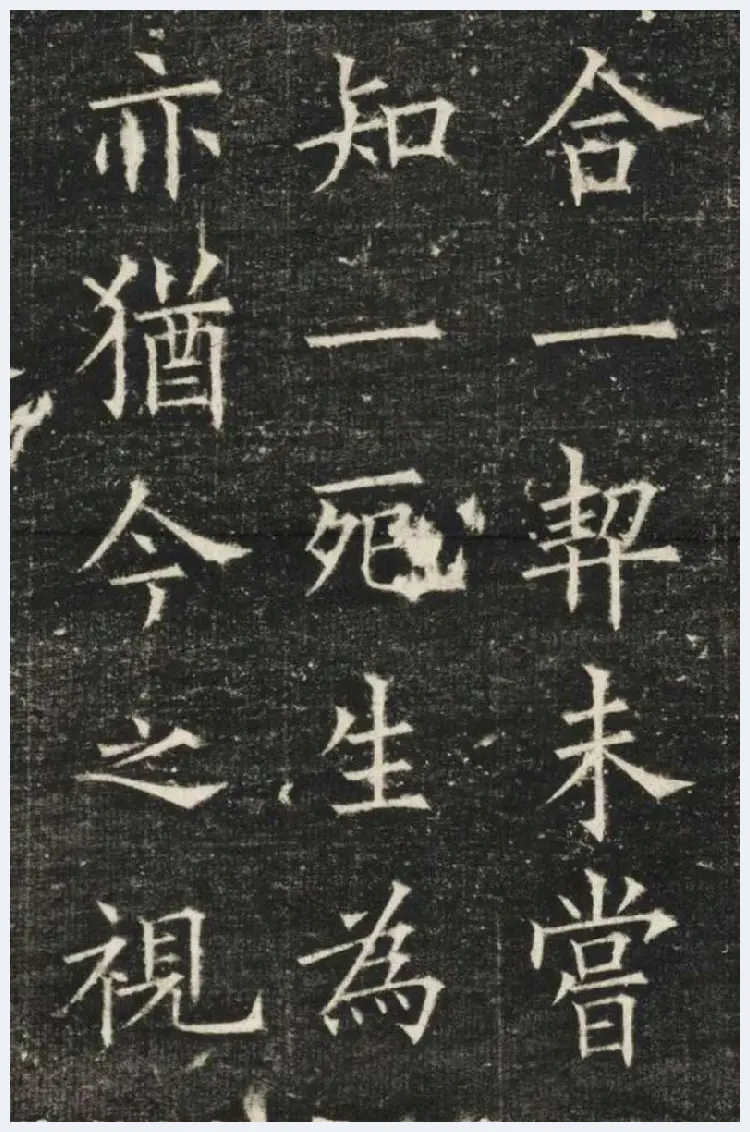 合一契未嘗
知一死生為
亦猶今之視